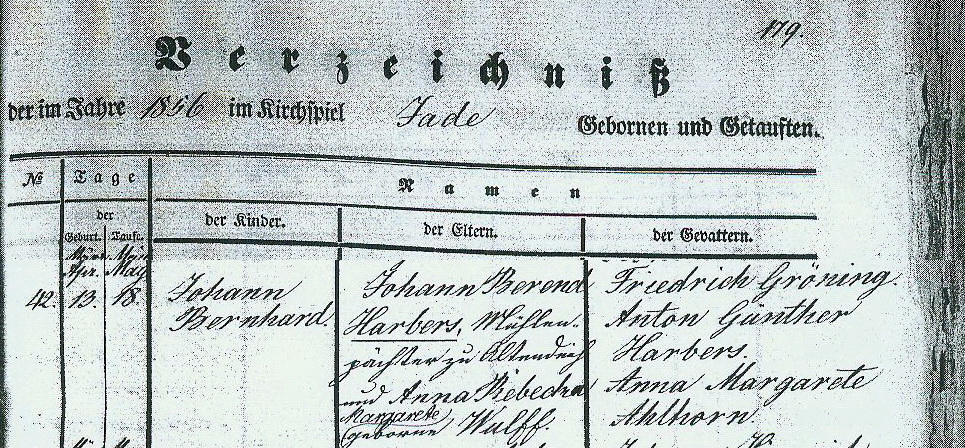 179.
Verzeichniß
der im Jahre 1856 im Kirchspiel Jade Gebornen und Getauften.
№ Tage Namen
der
Geburt. Taufe. der Kinder. der Eltern. der Gevattern.
Apr. May
42. 13. 18. Johann Johann Berend Friedrich Gröning.
Bernhard. Harbers, Mühlen- Anton Günther
pächter zu Altendeich Harbers.
und Anna Rebecka Anna Margarete
Margarete Ahlhorn.
geborne Wulff.